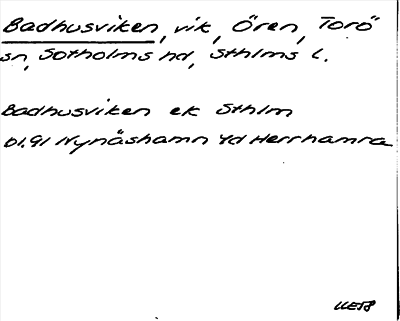 Badhusviken, vik, Ören, Torö
sn, Sotholms hd, Sthlms l.
Badhusviken ek Sthlm
bl.91 Nynäshamn Yd Herrhamra